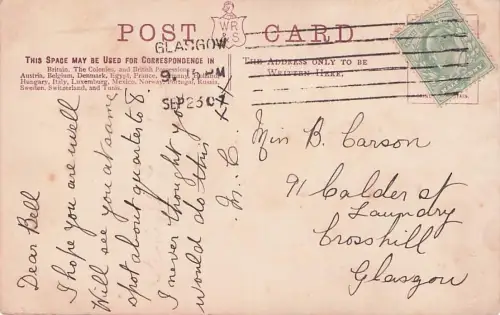 POST CARD
WR&S
THIS SPACE MAY BE USED FOR CORRESPONDENCE IN
Britain, The Colonies, and British Possessions,
Austria, Belgium, Denmark, Egypt, France, Germany, Holland,
Hungary, Italy, Luxemburg, Mexico, Norway, Portugal, Russia,
Sweden, Switzerland, and Tunis.
THE ADDRESS ONLY TO BE
WRITTEN HERE.
GLASGOW
SEP 23 07
Dear Bell
I hope you are well
Will see you at same
spot about quarter to 8.
I never thought you
would do this
M. C. xxx
Miss B. Carson
91 Calder st
Laundry
Crosshill
Glasgow